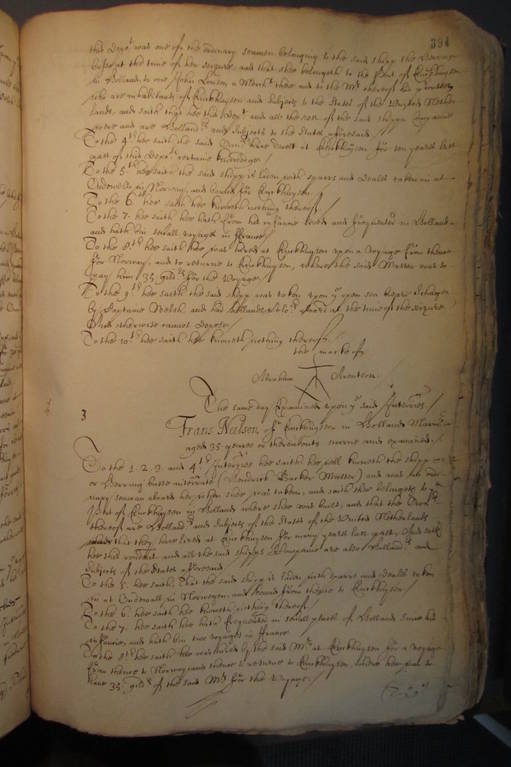 394
this Depot was one of the ordinary seamen belonging to the said shipp the
busse at the time of her seizure, and that she belongeth to the Port of Enchuysen
in Holland, to one John a Mercht there and to the Mr thereof his
who are inhabitants of Enchuysen and Subjects to the States of the United Nether-
lands, and saith that hee this Depot and all the rest of the said shipps Companie
were and are Hollandrs and Subjects to the States aforesaid
To the 4th hee saith the said have dwelt at Enchuysen for ten yeares last
past of this Depots certaine knowledge
To the 5th hee saith the said shipp is laden with sparrs and Deales taken in at
in Norway, and bound for Enchuysen
To the 6th hee saith hee knoweth nothing thereof
To the 7. hee saith hee hath from his lived and frequented in Holland
and hath bin severall voyages in ffrance
To the 8th hee saith hee was hired at Enchuysen upon a Voyage from thence
for Norway, and to returne to Enchuysen, where the said Master was to
pay him 35 gildrs for the Voyage
To the 9th hee saith the said shipp was taken upon open sea
by Captaine Welch and had at the time of the seizure
And otherwise cannot depose
To the 10th hee saith hee knoweth nothing thereof
the marke of
Abraham Arentson
The same day Examined upon ye said Interries
3
Frans Neilson of Enchuysen in Holland Marinr
aged 35 yeares or thereabouts sworne and examined
To the 1. 2. 3. and 4th Interries hee saith hee well knoweth the shipp
or Herring busse interrate (Hendrick Barker Master) and was an ordi-
nary seaman aboard her when shee was taken, and saith shee belongeth to ye
Port of Enchuysen in Holland where shee was built, and that the
thereof are Hollandrs and Subjects of the States of the United Netherlands
that they have lived at Enchuysen for many yeares last past, And saith
hee this rendent and all the said shipps Companie are also Hollandrs and
Subjects of the States aforesaid
To the 5. hee saith, that the said shipp is laden with sparrs and deales taken
in at in Norwegen, and bound from thence to Enchuysen
To the 6. hee saith hee knoweth nothing thereof
To the 7. hee saith hee hath frequented in severall places of Holland since his
infancie, and hath bin two voyages in ffrance
To the 8th hee saith hee was hired by the said Mr at Enchuysen for a voyage
from thence to Norway and thence to returne to Enchuysen, where hee was to
have 35 gildrs of the said Mr for the Voyage